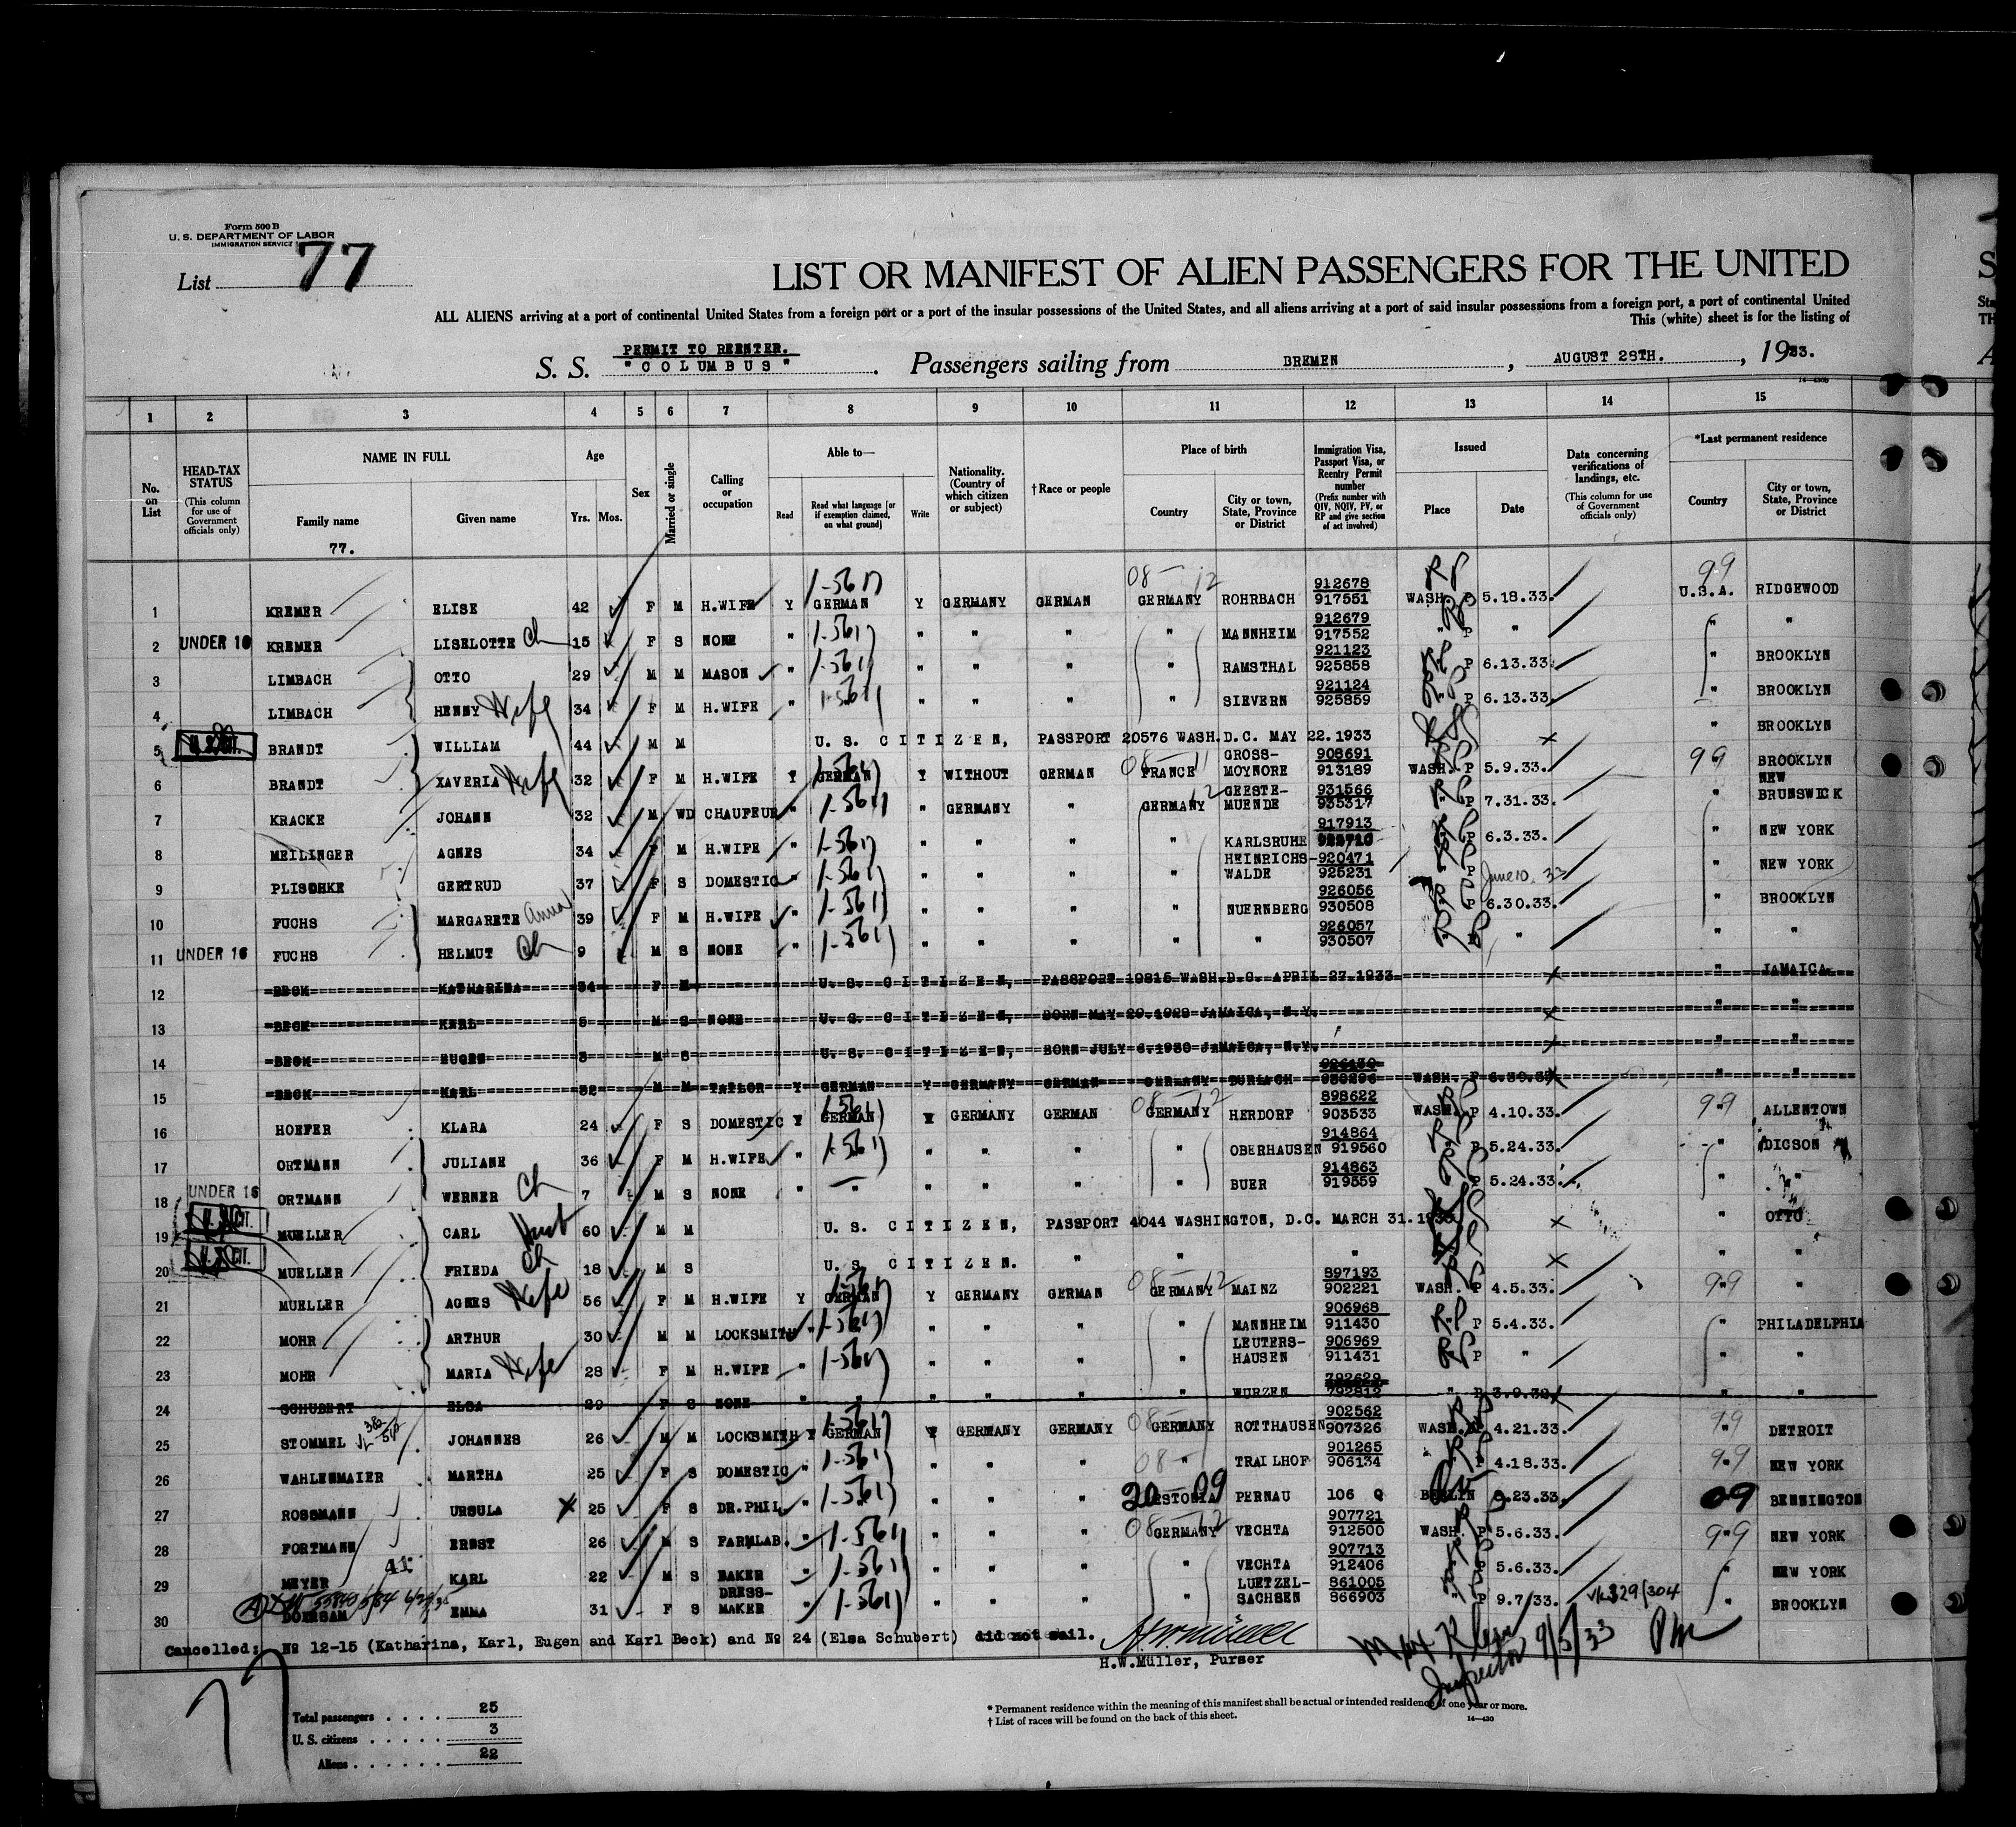 Form 500 B
U. S. DEPARTMENT OF LABOR
IMMIGRATION SERVICE
List 77
LIST OR MANIFEST OF ALIEN PASSENGERS FOR THE UNITED
ALL ALIENS arriving at a port of continental United States from a foreign port or a port of the insular possessions of the United States, and all aliens arriving at a port of said insular possessions from a foreign port, a port of continental United
This (white) sheet is for the listing of
PERMIT TO REENTER.
S. S. "COLUMBUS" Passengers sailing from BREMEN, AUGUST 28TH., 1933.
1 2 3 4 5 6 7 8 9 10 11 12 13 14 15
No. on List
HEAD-TAX STATUS (This column for use of Government officials only)
NAME IN FULL Family name Given name
Age Yrs. Mos.
Sex
Married or single
Calling or occupation
Able to— Read Read what language [or if exemption claimed, on what ground] Write
Nationality. (Country of which citizen or subject)
†Race or people
Place of birth Country City or town, State, Province or District
Immigration Visa, Passport Visa, or Reentry Permit number (Prefix number with QIV, NQIV, PV, or RP and give section of act involved)
Issued Place Date
Data concerning verifications of landings, etc. (This column for use of Government officials only)
*Last permanent residence Country City or town, State, Province or District
77.
1 KREMER ELISE 42 F M H.WIFE Y GERMAN Y GERMANY GERMAN GERMANY ROHRBACH 912678 917551 WASH. P 5.18.33. U.S.A. RIDGEWOOD
2 UNDER 16 KREMER LISELOTTE Ch 15 F S NONE " " " " " MANNHEIM 912679 917552 " P " " "
3 LIMBACH OTTO 29 M M MASON " " " " " RAMSTHAL 921123 925858 P 6.13.33. " BROOKLYN
4 LIMBACH HENNY Wife 34 F M H.WIFE " " " " " SIEVERN 921124 925859 " P 6.13.33. " BROOKLYN
5 U.S.CIT. BRANDT WILLIAM 44 M M U. S. CITIZEN, PASSPORT 20576 WASH.D.C. MAY 22.1933 " BROOKLYN
6 BRANDT XAVERIA Wife 32 F M H.WIFE Y GERMAN Y WITHOUT GERMAN FRANCE GROSS-MOYNORE 908691 913189 WASH. P 5.9.33. 99 BROOKLYN
7 KRACKE JOHANN 32 M WD CHAUFEUR " " GERMANY " GERMANY GEESTE-MUENDE 931566 935317 " P 7.31.33. " NEW BRUNSWICK
8 MEILINGER AGNES 34 F M H.WIFE " " " " " KARLSRUHE 917913 P 6.3.33. " NEW YORK
9 PLISCHKE GERTRUD 37 F S DOMESTIC " " " " " HEINRICHS-WALDE 920471 925231 P June 10. 33 " NEW YORK
10 FUCHS MARGARETE Anna 39 F M H.WIFE " " " " " NUERNBERG 926056 930508 P 6.30.33. " BROOKLYN
11 UNDER 16 FUCHS HELMUT Ch 9 M S NONE " " " " " " 926057 930507 " " "
12 BECK KATHARINA 34 F M U. S. CITIZEN, PASSPORT 19815 WASH.D.C. APRIL 27.1933 " JAMAICA
13 BECK KARL 5 M S NONE U. S. CITIZEN, BORN MAY 29.1928 JAMAICA, N.Y. " "
14 BECK EUGEN 3 M S U. S. CITIZEN, BORN JULY 6.1930 JAMAICA, N.Y. " "
15 BECK KARL 32 M M TAILOR Y GERMAN Y GERMANY GERMAN GERMANY DURLACH WASH. P 6.30.33 " "
16 HOEFER KLARA 24 F S DOMESTIC Y GERMAN Y GERMANY GERMAN GERMANY HERDORF 898622 903533 WASH. P 4.10.33. 99 ALLENTOWN
17 ORTMANN JULIANE 36 F M H.WIFE " " " " " OBERHAUSEN 914864 919560 P 5.24.33. " DICSON
18 UNDER 16 ORTMANN WERNER Ch 7 M S NONE " " " " " BUER 914863 919559 P 5.24.33. " "
19 U.S.CIT. MUELLER CARL Husb 60 M M U. S. CITIZEN, PASSPORT 4044 WASHINGTON, D.C. MARCH 31.1933 " OTTO
20 U.S.CIT. MUELLER FRIEDA Ch 18 M S U. S. CITIZEN. " " " " "
21 MUELLER AGNES Wife 56 F M H.WIFE Y GERMAN Y GERMANY GERMAN GERMANY MAINZ 897193 902221 WASH. P 4.5.33. 99 "
22 MOHR ARTHUR 30 M M LOCKSMITH " " " " " MANNHEIM 906968 911430 P 5.4.33. " PHILADELPHIA
23 MOHR MARIA Wife 28 F M H.WIFE " " " " " LEUTERS-HAUSEN 906969 911431 P " " "
24 SCHUBERT ELSA 29 F S NONE " " " " " " WURZEN 792812 " P 3.9.32 " "
25 STOMMEL JOHANNES 26 M M LOCKSMITH Y GERMAN Y GERMANY GERMANY GERMANY ROTTHAUSEN 902562 907326 WASH. P 4.21.33. 99 DETROIT
26 WAHLENMAIER MARTHA 25 F S DOMESTIC " " " " " TRAILHOF 901265 906134 " P 4.18.33. 99 NEW YORK
27 ROSSMANN URSULA 25 F S DR.PHIL. " " " " ESTONIA PERNAU 106 Q BERLIN 8.23.33. 09 BENNINGTON
28 FORTMANN ERNST 26 M S FARMLAB. " " " " GERMANY VECHTA 907721 912500 WASH. P 5.6.33. 99 NEW YORK
29 MEYER KARL 22 M S BAKER " " " " " VECHTA 907713 912406 " P 5.6.33. " NEW YORK
30 DOERSAM EMMA 31 F S DRESS-MAKER " " " " " LUETZEL-SACHSEN 861005 866903 " P 9.7/33. " BROOKLYN
Cancelled: No 12-15 (Katharina, Karl, Eugen and Karl Beck) and No 24 (Elsa Schubert) did not sail.
H.W.Müller, Purser
Inspector 9/5/33
77
Total passengers 25
U. S. citizens 3
Aliens 22
* Permanent residence within the meaning of this manifest shall be actual or intended residence of one year or more.
† List of races will be found on the back of this sheet.